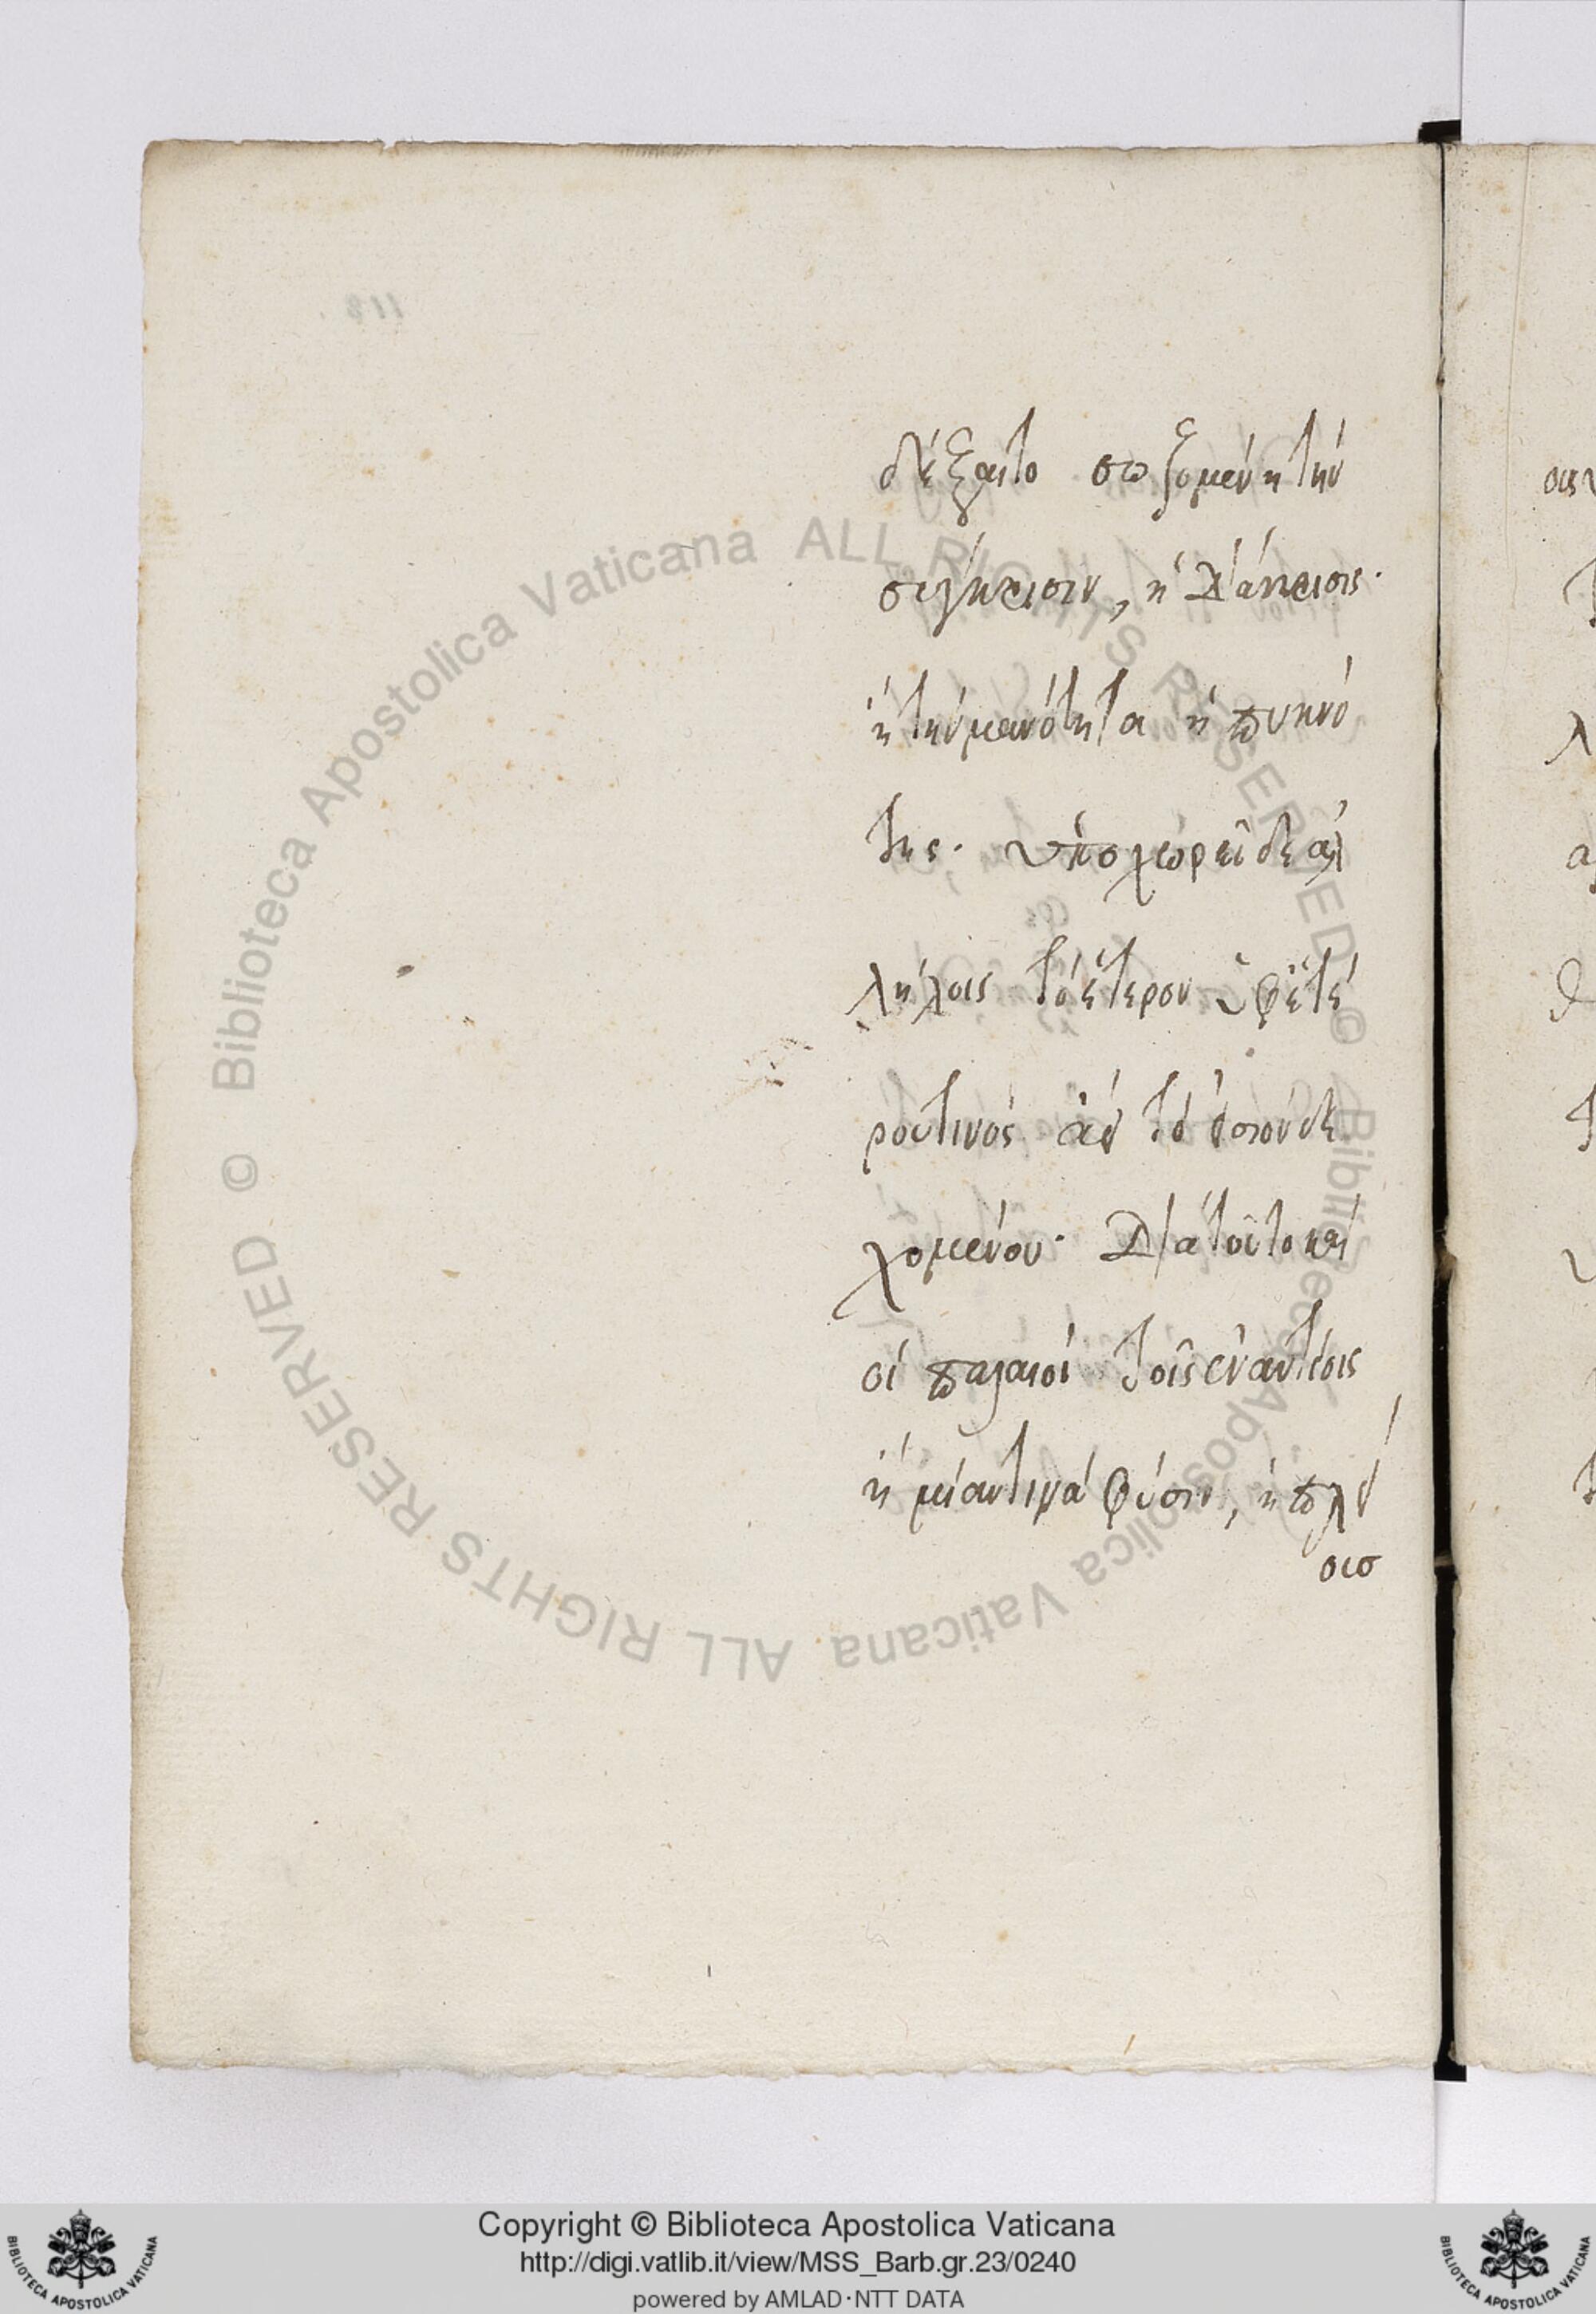 δέξαιτο σωζομένη τὴν
σύγκρισιν, ἡ διάκρισις.
ἢ τὴν μανότητα ἡ πυκνό
της. ὑποχωρεῖ δὲ ἀλ
λήλοις τὸ ἕτερον ὑφ' ἑτέ
ρου τινὸς ἂν τὸ ὂν οὐ δε
χομένου. Διὰ τοῦτο καὶ
οἱ παλαιοὶ τοῖς ἐναντίοις
ἢ μίαν τινὰ φύσιν, ἢ πλεί
οισ
© Biblioteca Apostolica Vaticana ALL RIGHTS RESERVED © Biblioteca Apostolica Vaticana ALL RIGHTS RESERVED
Copyright © Biblioteca Apostolica Vaticana
http://digi.vatlib.it/view/MSS_Barb.gr.23/0240
powered by AMLAD·NTT DATA
BIBLIOTECA APOSTOLICA VATICANA
BIBLIOTECA APOSTOLICA VATICANA